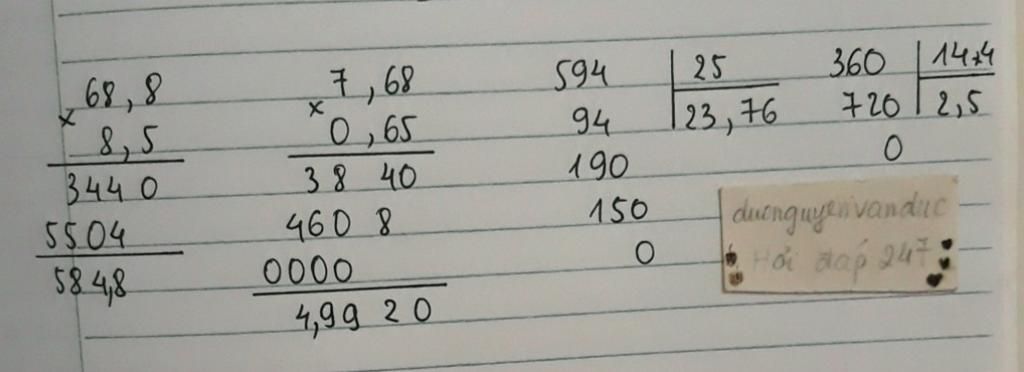 68,8
×
8,5
3440
5504
584,8
7,68
×
0,65
38 40
460 8
0000
4,99 20
594 25
94 23,76
190
150
0
360 144
720 2,5
0
duongnguyenvanduc
Hỏi đáp 247